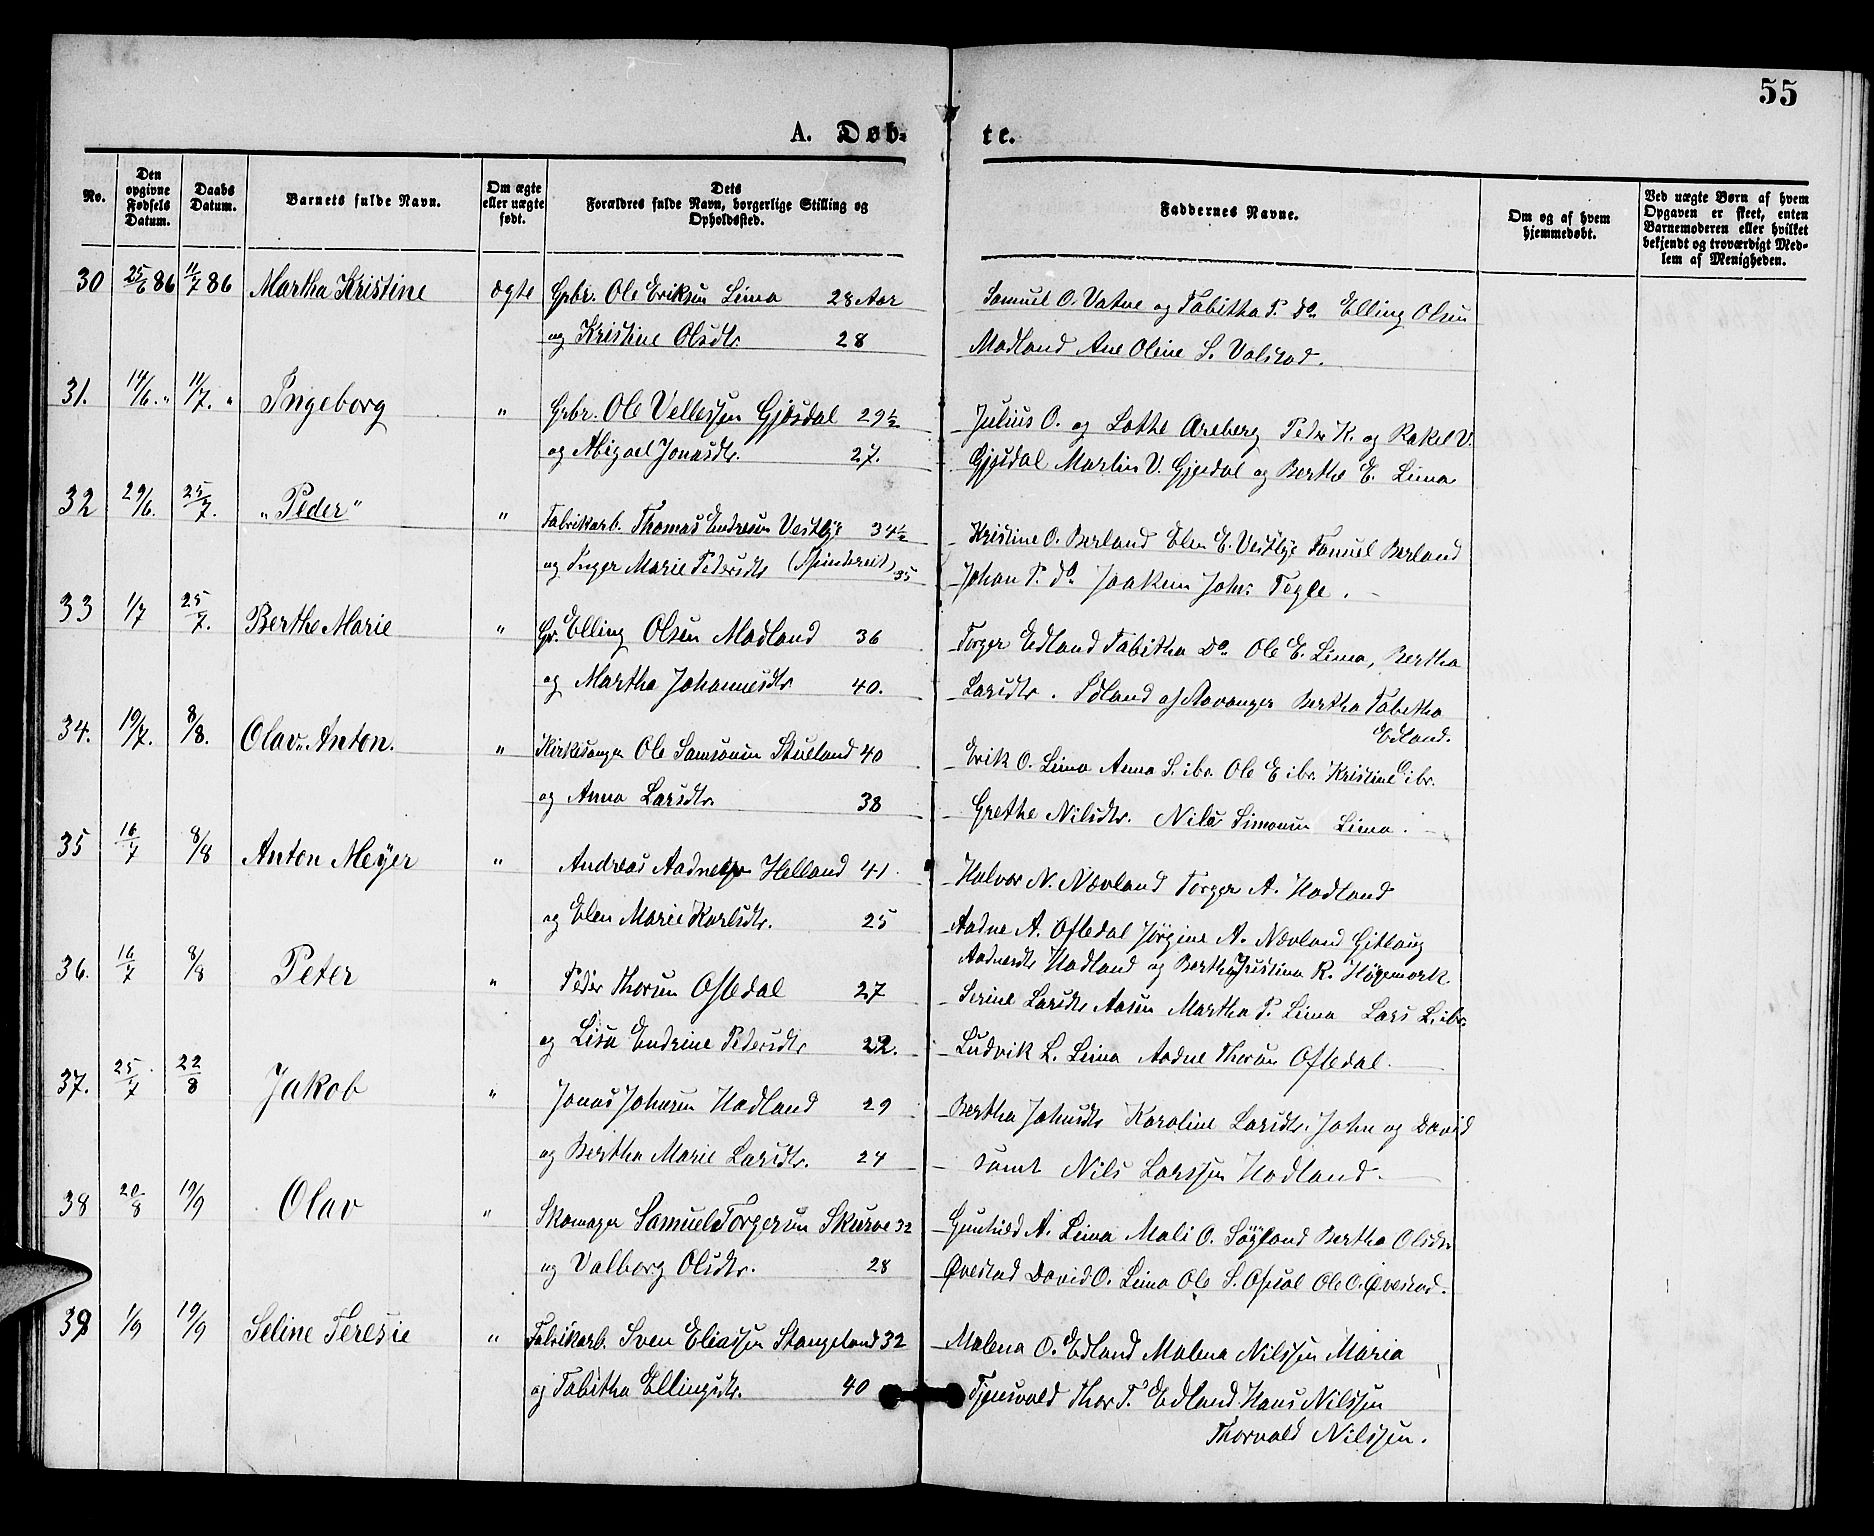 55
A. Døb- te.
No.
Den opgivne Fødsels Datum.
Daabs Datum.
Barnets fulde Navn.
Om ægte eller uægte født.
Dets Forældres fulde Navn, borgerlige Stilling og Opholdssted.
Faddernes Navne.
Om og af hvem hjemmedøbt.
Ved uægte Børn af hvem Opgaven er skeet, enten Barnemoderen eller hvilket bekjendt og troværdigt Medlem af Menigheden.
30 25/6 86 11/7 86 Martha Kristine ægte Grbr. Ole Eriksen Lima 28 Aar Samuel O. Vatne og Tabitha T. do Elling Olsen
og Kristine Olsdtr 28 Madland Ane Oline S. Valstad.
31. 14/6. " 11/7. " Ingeborg " Grbr. Ole Vellessen Gjesdal 29½ Julius O. og Lothe Areberg Peder K. og Rakel V.
og Abigael Jonasdtr. 27. Gjesdal Martin V. Gjesdal og Berthe E. Lima
32 29/6. 25/7. "Peder" " Fabrikarb. Thomas Endresen Vestlye 34½ Kristine O. Berland Elen E. Vestlye Samuel Berland
og Inger Marie Pedersdtr (Spinderiet) 35 Johan T. do Joakim Johs Fogle.
33 1/7 25/7. Berthe Marie " Gr. Elling Olsen Madland 36 Torger Edland Tabitha Do. Ole E. Lima, Bertha
og Martha Johannesdtr 40. Larsdtr. Edland af Stavanger Bertha Tabitha
Edland.
34. 19/7. 8/8. Olav Anton. " Kirkesanger Ole Samsonsen Stueland 40 Erik O. Lima Anna S. ibr. Ole E ibr. Kristine O ibr.
og Anna Larsdtr. 38 Grethe Nilsdtr. Nils Simonsen Lima.
35 16/7 8/8 Anton Meyer " Andreas Aadnesen Helland 41. Halvor N. Nævland Torger A. Hadland
og Elen Marie Karlsdtr. 25 Aadne A. Oftedal Jørgine A. Nævland Gitlaug
Aadnesdtr Hadland og Bertha Justina R. Høgemork
36. 16/7 8/8 Peter " Peder Thorsen Oftedal 27 Serine Larsdtr Aasen Martha T. Lima Lars L. ibr.
og Lisa Endrine Pedersdtr 22. Ludvik L. Lima Aadne Thorsen Oftedal.
37. 25/7 22/8 Jakob " Jonas Johnsen Hadland 29 Bertha Johnsdtr Karoline Larsdtr. John og David
og Bertha Marie Larsdtr. 24 samt Nils Larssen Hadland.
38 20/8 19/9 Olav " Skomager Samuel Torgersen Skurve 32 Gunhild A. Lima Mali O. Søyland Bertha Olsdtr
og Valborg Olsdtr. 28 Øvestad David O. Lima Ole S. Opsal Ole O. Øvestad.
39 1/9 19/9 Seline Teresie " Fabrikarb. Sven Eliassen Stangeland 32 Malena O. Edland Malena Nilssen Maria
og Tabitha Ellingsdtr. 40 Tjensvold Thor T. Edland Hans Nilssen
Thorvald Nilssen.